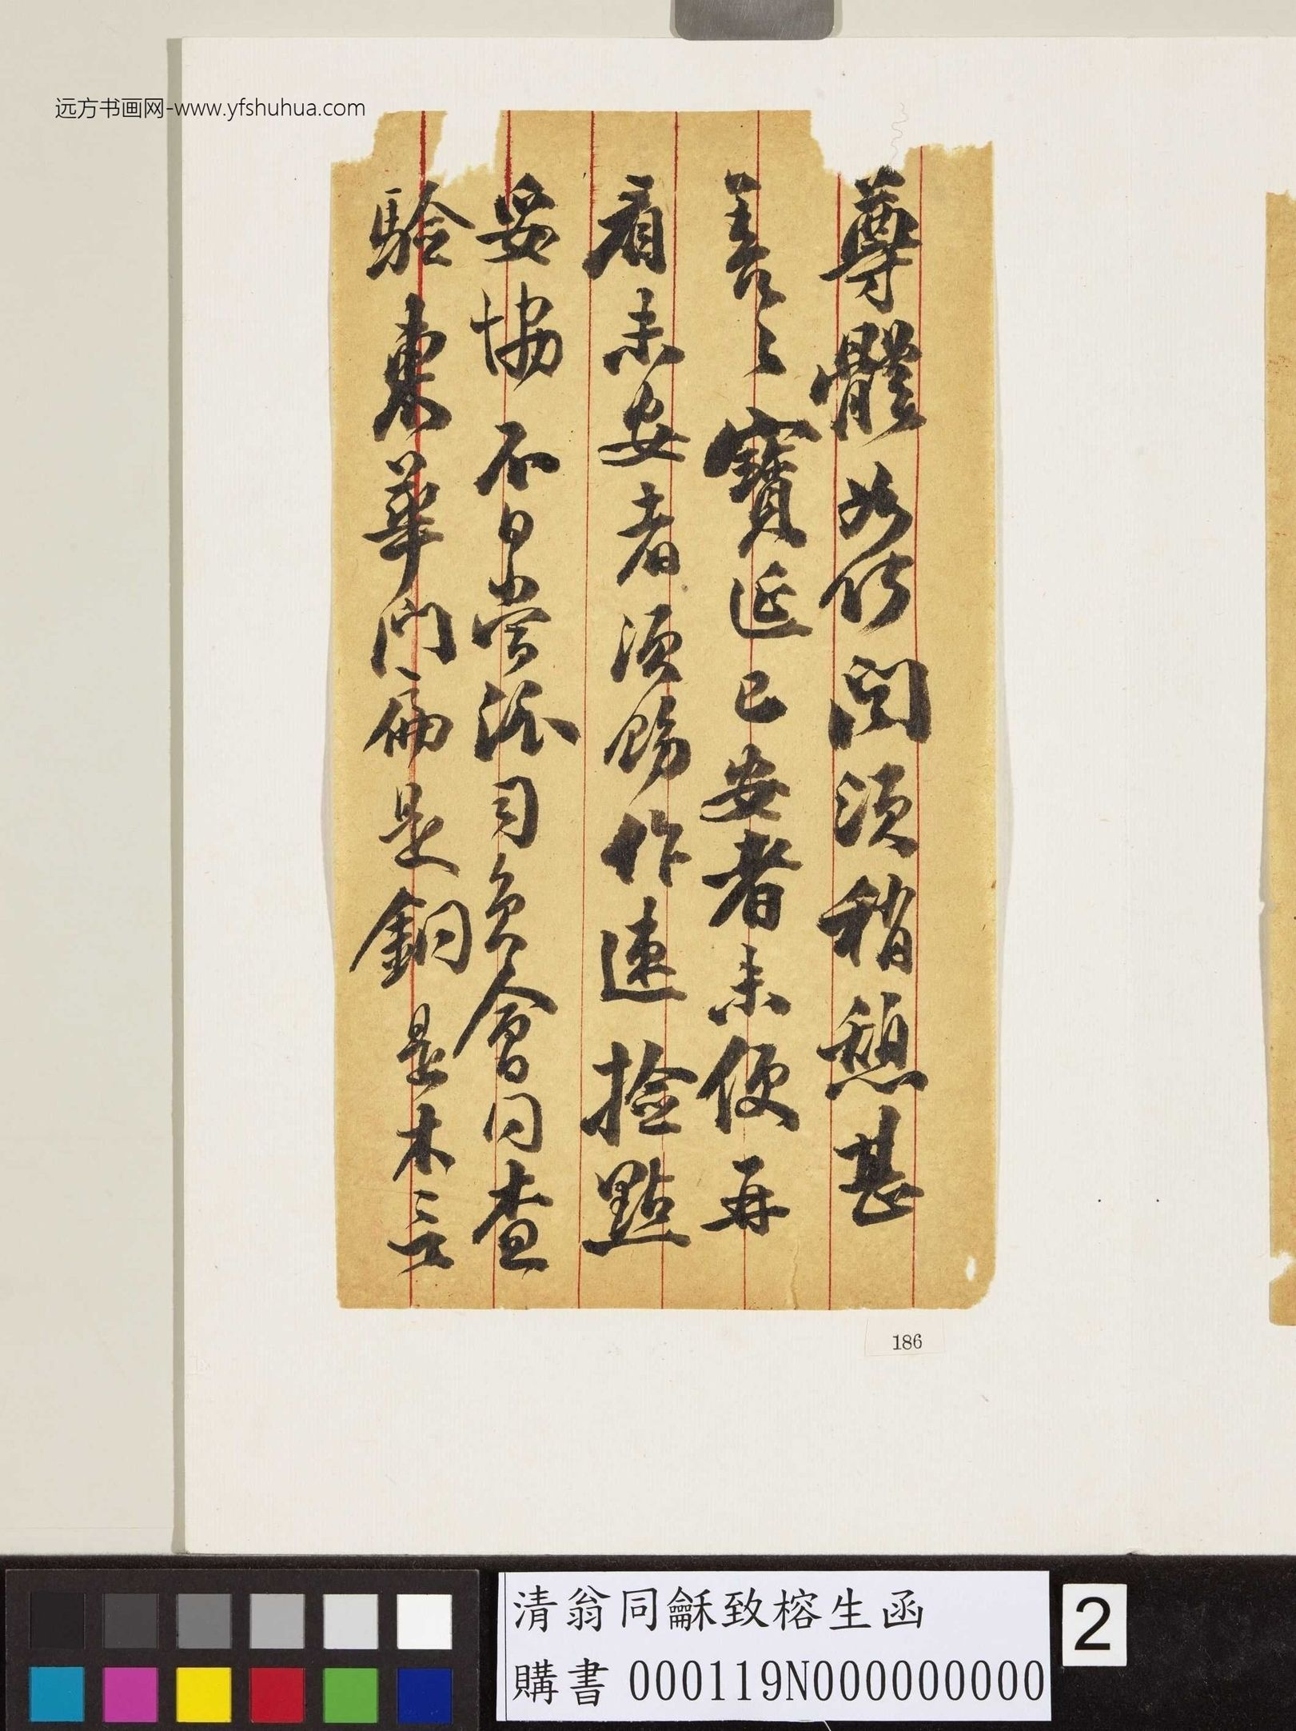 远方书画网-www.yfshuhua.com
尊體如何聞須稍憩甚
善〻寶匠已安者未便再
看未安者須飭作速撿點
妥協不日當派司員會同查
驗東華門扁是銅是木三言
186
清翁同龢致榕生函
購書 000119N000000000
2